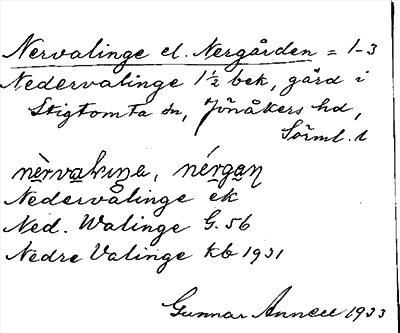 Nervalinge el. Nergården = 1-3
Nedervalinge 1½ bek, gård i
Stigtomta sn, Jönåkers hd,
Sörml. l
nèrvaliŋa, nérgaɳ
Nedervålinge ek
Ned. Walinge G. 56
Nedre Valinge kb 1931
Gunnar Annell 1933